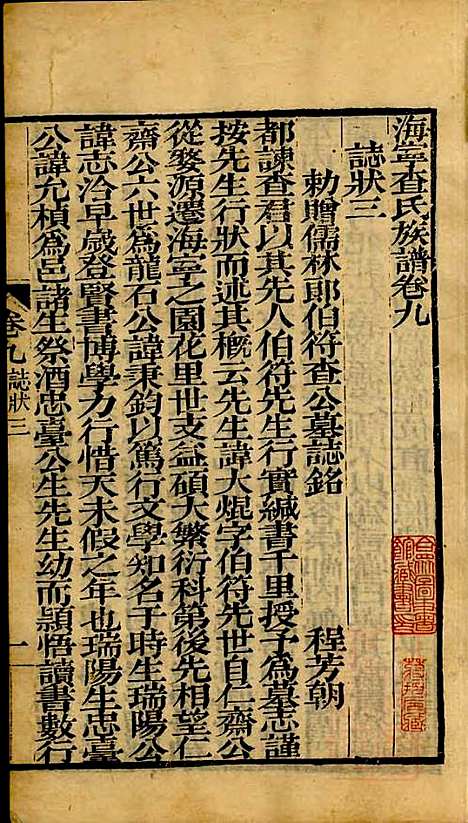 海寧查氏族譜卷九
誌狀三
勅贈儒林郎伯符查公墓誌銘
程芳朝
都諫查君以其先人伯符先生行實緘書千里授予為墓志謹
按先生行狀而述其概云先生諱大焜字伯符先世自仁齋公
從婺源遷海寧之園花里世支益碩大繁衍科第後先相望仁
齋公六世為龍石公諱秉鈞以篤行文學知名于時生瑞陽公
諱志洽早歲登賢書博學力行惜天未假之年也瑞陽生忠臺
公諱允楨為邑諸生祭酒忠臺公生先生幼而頴悟讀書數行
卷九 誌狀三
一